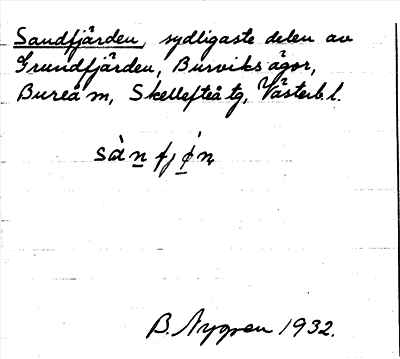 Sandfjärden, sydligaste delen av
Grundfjärden, Burviks ägor,
Bureå m, Skellefteå tg, Västerb. l.
sàn fjǿn
B. Nygren 1932.